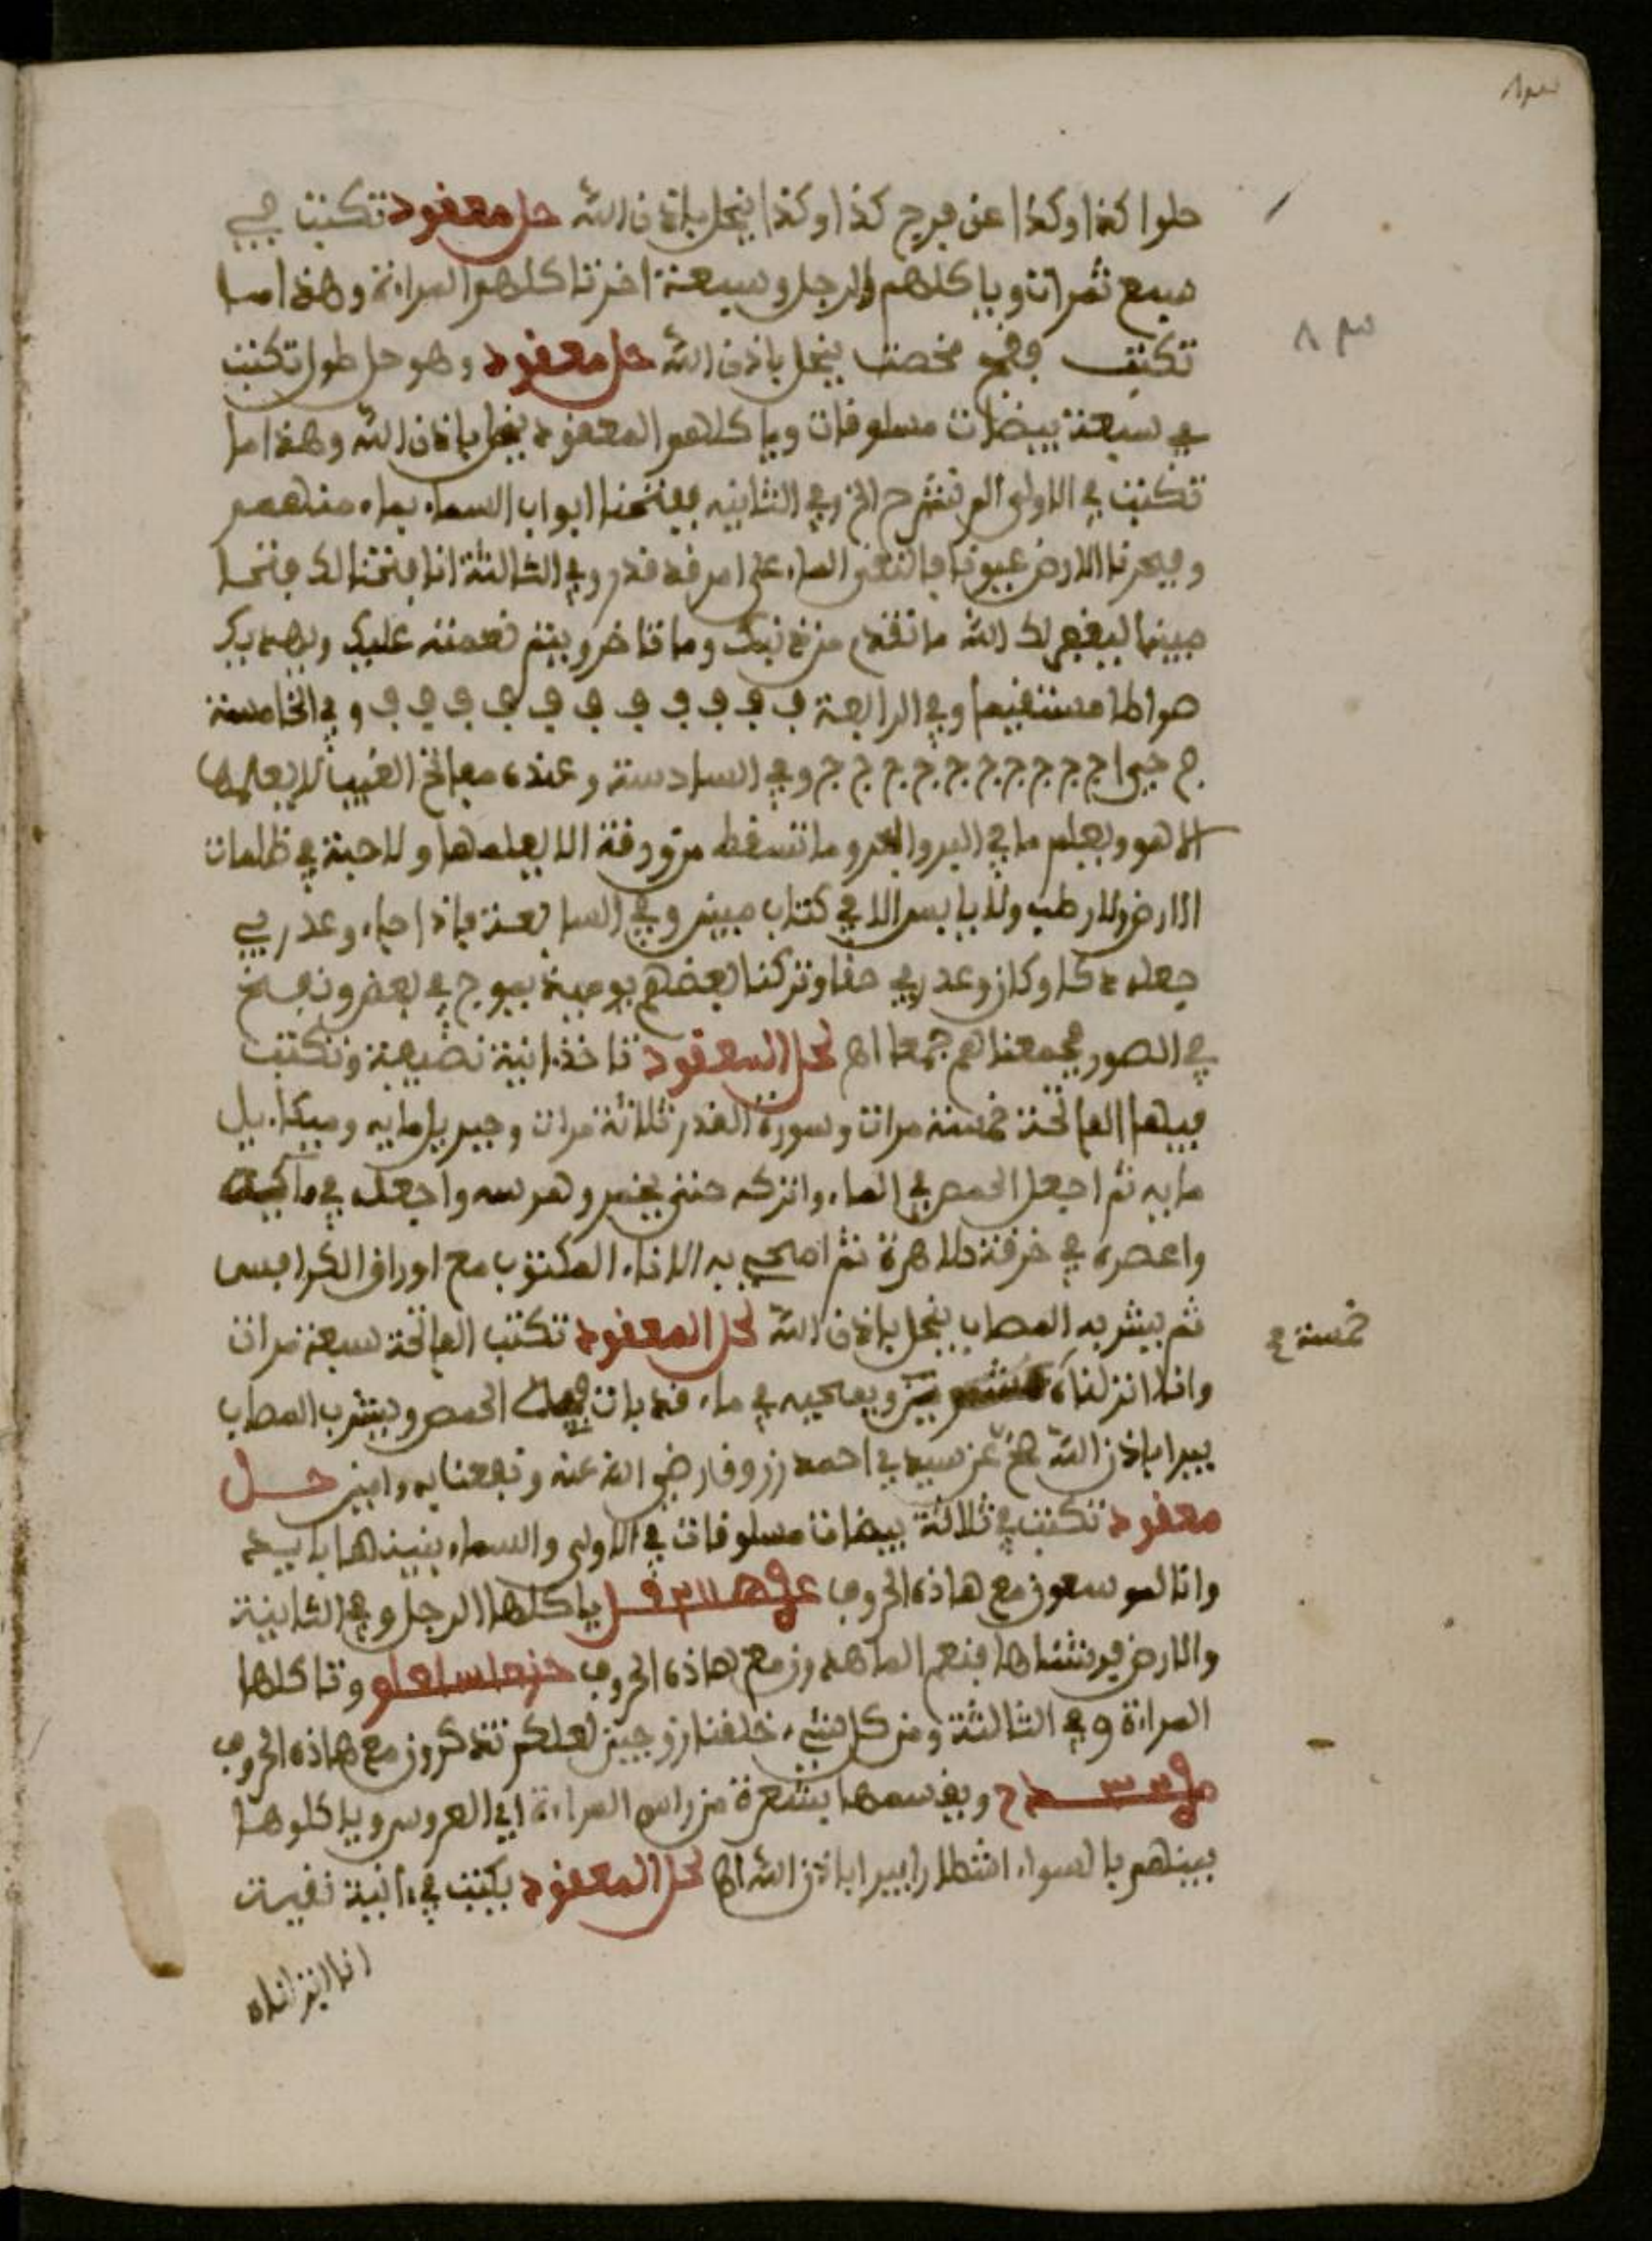 حلوا كذا وكذا عن فرج كذا وكذا ينحل باذن الله حل معقود تكتب في
سبع ثمرات وياكلهم الرجل وسبعة اخرتاكلهوا المراة وهذا ما
تكتب ينحل باذن الله حل معقود وهو حل طول تكتب
في سبعة بيضات مسلوقات وياكلهو المعقود ينحل باذن الله وهذا ما
تكتب في الاولى الم نشرح الخ وفي الثانيه ففتحنا ابواب السماء بماء منهمر
وفجرنا الارض عيونا فالتقى الماء على امر قد قدر وفي الثالثة انا فتحنا لك فتحا
مبينا ليغفر لك الله ما تقدم من ذنبك وما تاخر ويتم نعمته عليك ويهديك
صراطا مستقيما وفي الرابعة ف ف ف ف ف ف ف ف ف ف ف وفي الخامسة
ج ج ج ج ج ج ج ج ج ج وفي السادسة وعنده مفاتح الغيب لا يعلمها
الا هو ويعلم ما في البر والبحر وما تسقط من ورقة الا يعلمها ولا حبة في ظلمات
الارض ولا رطب ولا يابس الا في كتاب مبين وفي السابعة فاذا جاء وعد ربي
جعله دكا وكان وعد ربي حقا وتركنا بعضهم يوميذ يموج في بعض ونفخ
في الصور فجمعناهم جمعا اه لحل المعقود تاخذ انية نضيفة وتكتب
فيها الفاتحة خمسة مرات وسورة القدر ثلاثة مرات وجبريل مايه وميكاييل
مايه ثم اجعل الحمص في الماء واتركه حتى يخمر وهرسه واجعله في
واعصره في خرقة طاهرة ثم امحي به الاناء المكتوب مع اوراق الكرافس
ثم يشربه المصاب ينحل باذن الله لحل المعقود تكتب الفاتحة سبعة مرات
خمسة ع
وانا انزلناه ويمحيه في ماء قد بات فيه الحمص ويشرب المصاب
يبرا باذن الله صح عن سيدي احمد زروق رضي الله عنه ونفعنا به ءامين حل
معقود تكتب في ثلاثة بيضات مسلوقات في الاولى والسماء بنيناها باييد
وانا لموسعون مع هاذه الحروف ياكلها الرجل وفي الثانية
والارض فرشناها فنعم الماهدون مع هاذه الحروف وتاكلها
المراة وفي الثالثة ومن كل شيء خلقنا زوجين لعلكم تذكرون مع هاذه الحروف
ويقسمها بشعرة من راس المراة اي العروس وياكلوها
بينهم بالسواء اشطارا يبرا باذن الله اه لحل المعقود يكتب في ءانية نقية
انا انزلناه